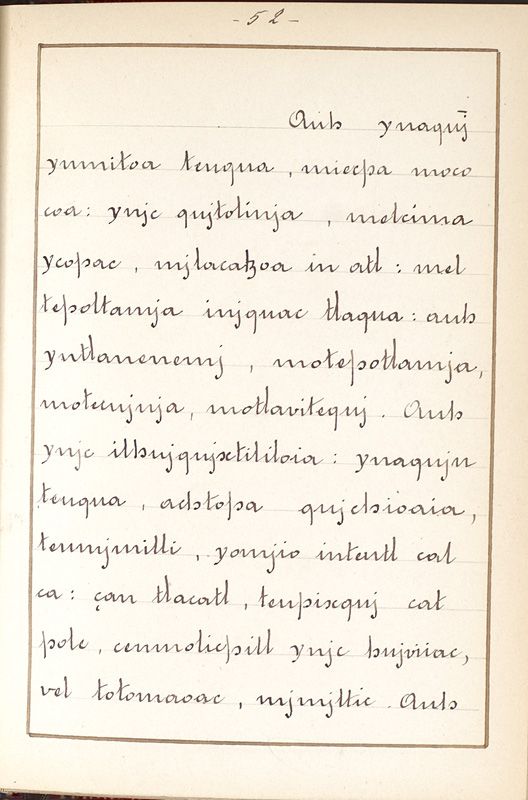 - 52 -
Auh ynaquī
ynmitoa teuqua, miecpa moco
coa: ynjc qujtolinja, melcima
ycopac, mjlacatzoa in atl: mel
tepoltamja injquac tlaqua: auh
yntlanenemj, motepotlamja,
motecujnja, motlavitequj. Auh
ynjc ilhujqujxtililoia: ynaqujn
teuqua, achtopa qujchioaia,
teumjmilli, yomjio inteutl cat
ca: çan tlacatl, teupixquj cat
pole, cemmolicpill ynjc hujviiac,
vel totomaoac, mjmjltic. Auh